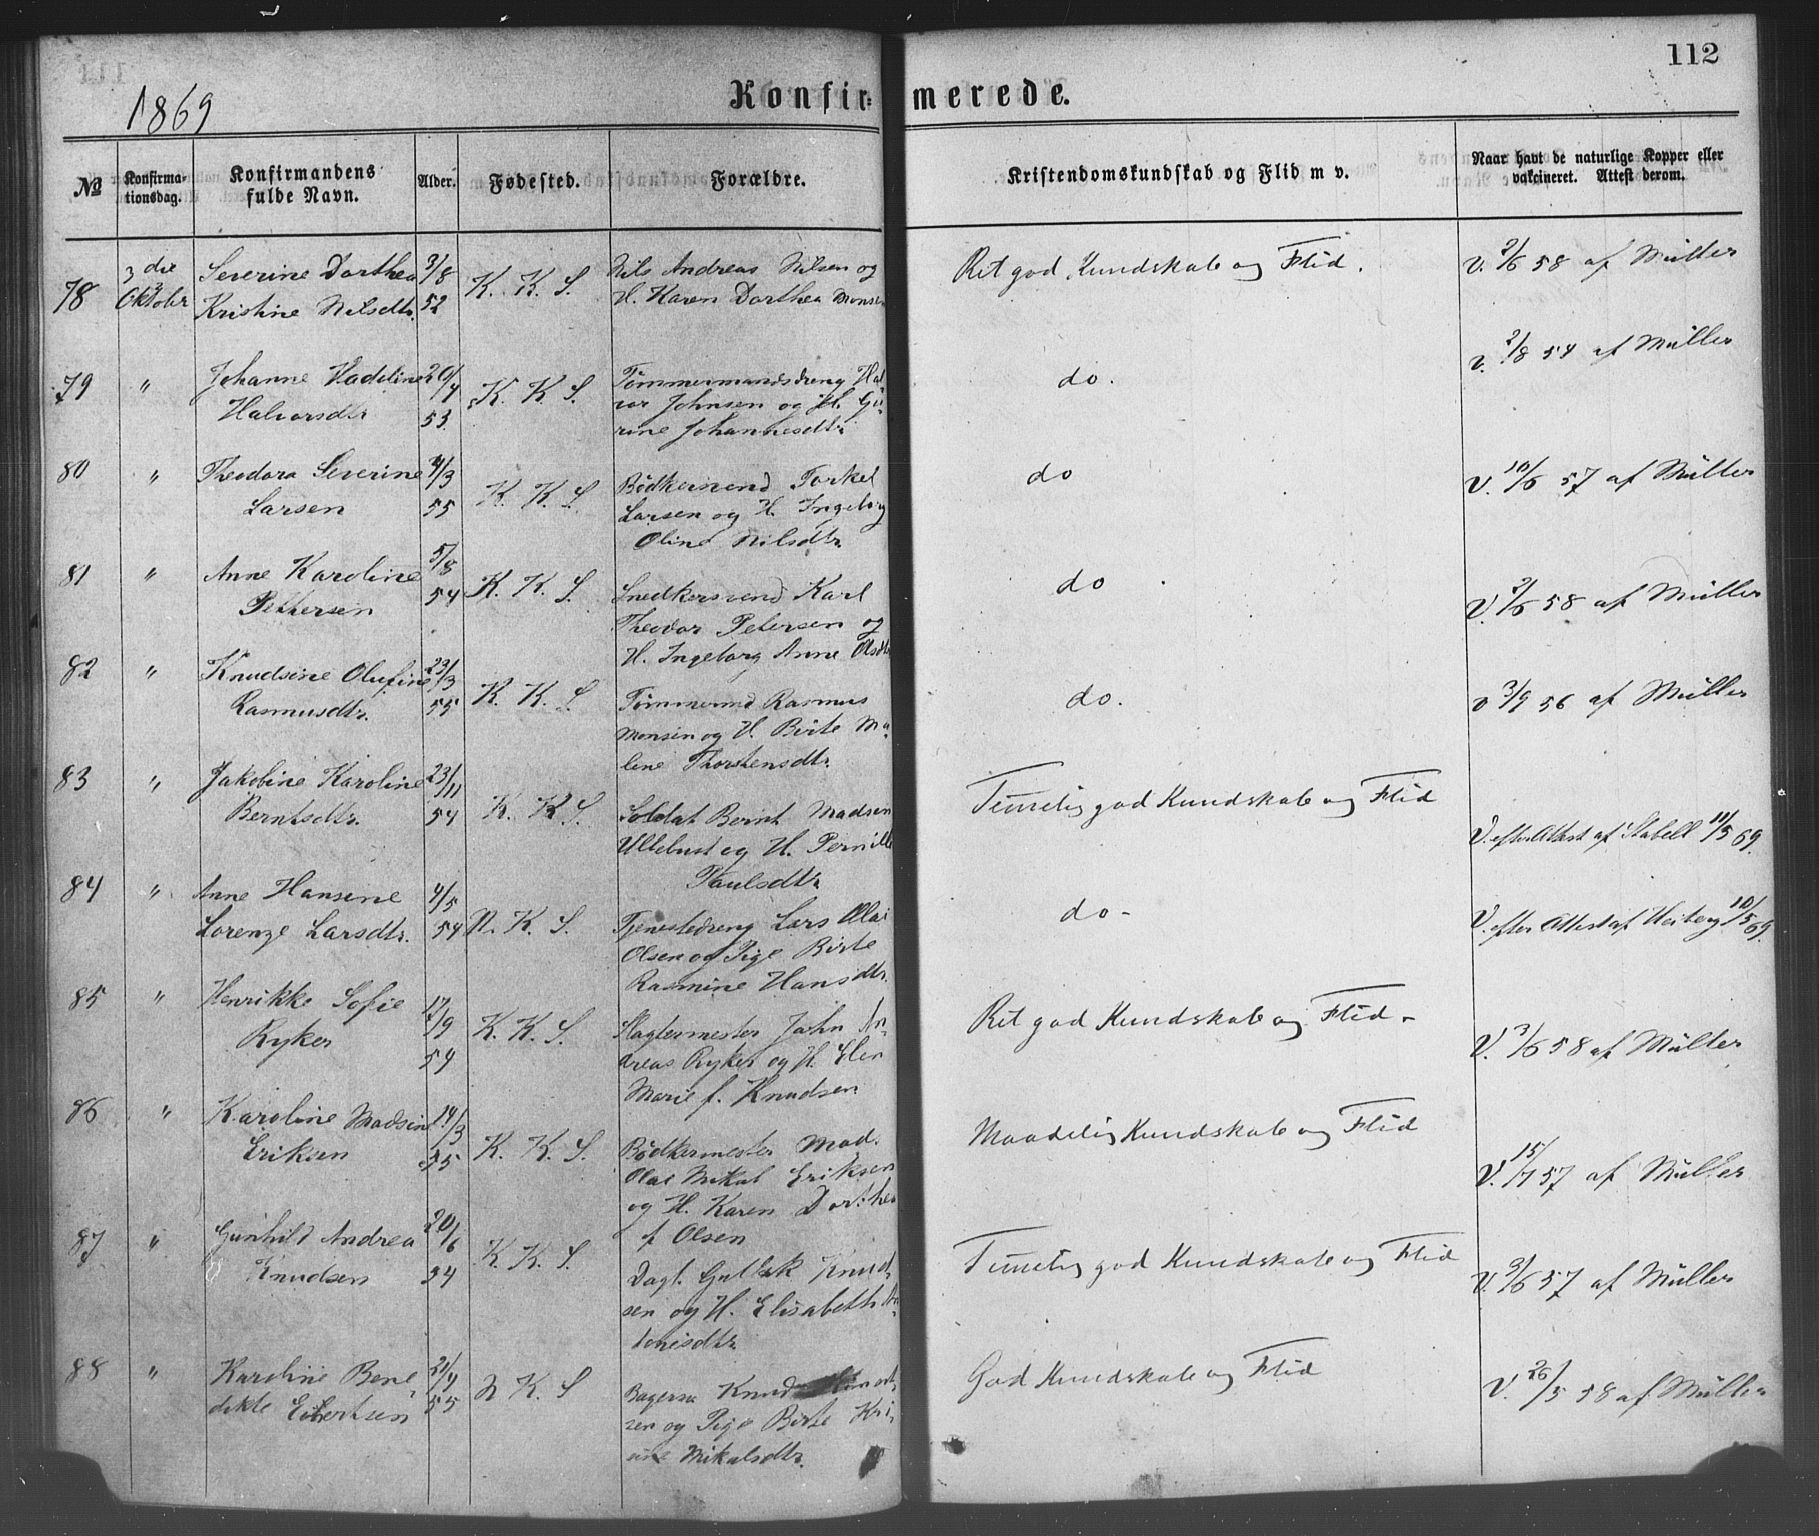 112
1869
Konfir= merede.
№
Konfirma-
tionsdag.
Konfirmandens
fulde Navn.
Alder.
Fødested.
Forældre.
Kristendomskundskab og Flid m v.
Naar havt de naturlige Kopper eller
vakcineret. Attest derom.
78
3die
Oktober
Severine Dorthea
Kristine Nilsdtr.
3/8
52
K. K. S.
Nils Andreas Nilsen og
H. Karen Dorthea Monsen
Ret god Kundskab og Flid.
V. 2/6 58 af Müller
79
"
Johanne
Halvorsdtr
53
K. K. S.
Tømmermandsdreng Hal-
vor Johnsen og H. Gu-
rine Johannesdtr
do.
V. 2/8 54 af Müller
80
"
Theodora Severine
Larsen
4/3
55
K. K. S.
Bødkersvend Torkel
Larsen og H. Ingeborg
Oline Nilsdtr
do
V. 10/6 57 af Müller
81
"
Anne Karoline
Pettersen
5/8
54
K. K. S.
Snedkersvend Karl
Theodor Petersen og
H. Ingeborg Anne Olsdtr
do
V. 2/6 58 af Müller
82
"
Knudsine Olufine
Rasmusdtr.
23/3
55
K. K. S.
Tømmermd Rasmus
Monsen og H. Birte Ma-
line Thorstensdtr
do.
V 3/9 56 af Müller
83
"
Jakobine Karoline
Berntsdtr.
23/11
54
K. K. S.
Soldat Bernt Madsen
Ullebust og H. Pernille
Paulsdtr
Temelig god Kundskab og Flid
V. efter Attest af Stabell 11/5 69.
84
"
Anne Hansine
Lorenze Larsdtr.
4/5
54
N. K. S.
Tjenestedreng Lars Olai
Olsen og Pige Birte
Rasmine Hansdtr.
do-
V. efter Attest af Heiberg 10/5 69.
85
"
Henrikke Sofie
Ryker
17/9
54
K. K. S.
Slagtermester John An-
dreas Ryker og H. Elen
Marie f. Knudsen
Ret god Kundskab og Flid-
V. 3/6 58 af Müller
86
"
Karoline Madsine
Eriksen
14/3
55
K. K. S.
Bødkermester Mad.
Olai Mikal Eriksen
og H. Karen Dorthea
f Olsen
Maadelig Kundskab og Flid
V. 15/7 57 af Müller
87
"
Gunhild Andrea
Knudsen
20/6
54
K. K. S.
Dagl. Gullak Knud-
sen og H. Elisabeth An-
tonisdtr
Temelig god Kundskab og Flid
V. 9/6 57 af Müller
88
"
Karoline Bene-
dikte Eilertsen
21/4
55
N K. S
Bagersv Knud
sen og Pige Birte Kri-
Mikalsdtr.
God Kundskab og Flid
V. 26/5 58 af Müller